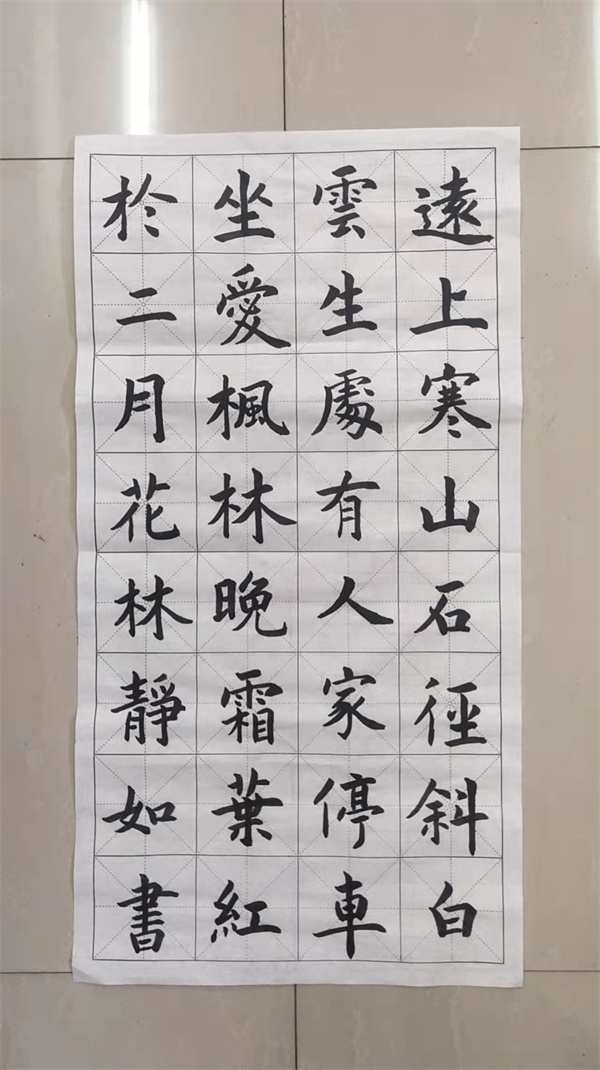 遠上寒山石徑斜白
雲生處有人家停車
坐愛楓林晚霜葉紅
於二月花林靜如書